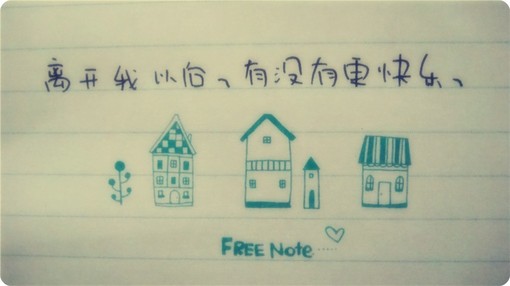 离开我以后、有没有更快乐、
FREE Note.....